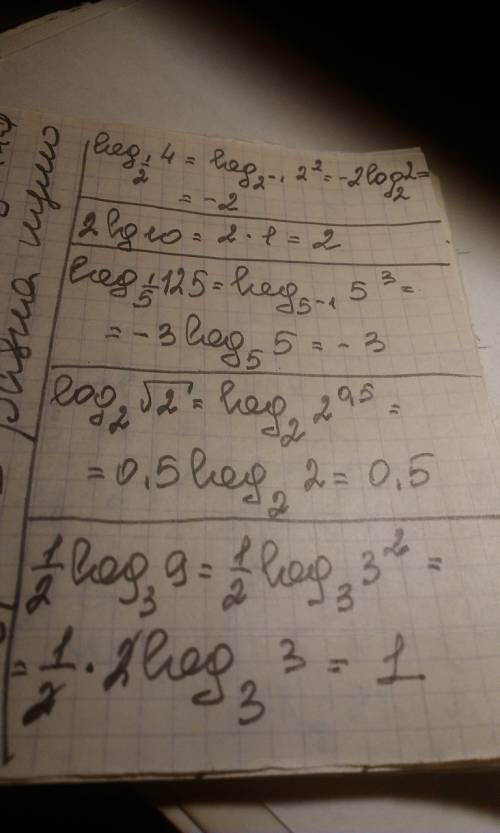 log_{1/2} 4 = log_{2^{-1}} 2^2 = -2 log_2 2 =
= -2
2 lg 10 = 2 · 1 = 2
log_{1/5} 125 = log_{5^{-1}} 5^3 =
= -3 log_5 5 = -3
log_2 √2 = log_2 2^{0,5} =
= 0,5 log_2 2 = 0,5
1/2 log_3 9 = 1/2 log_3 3^2 =
= 1/2 · 2 log_3 3 = 1